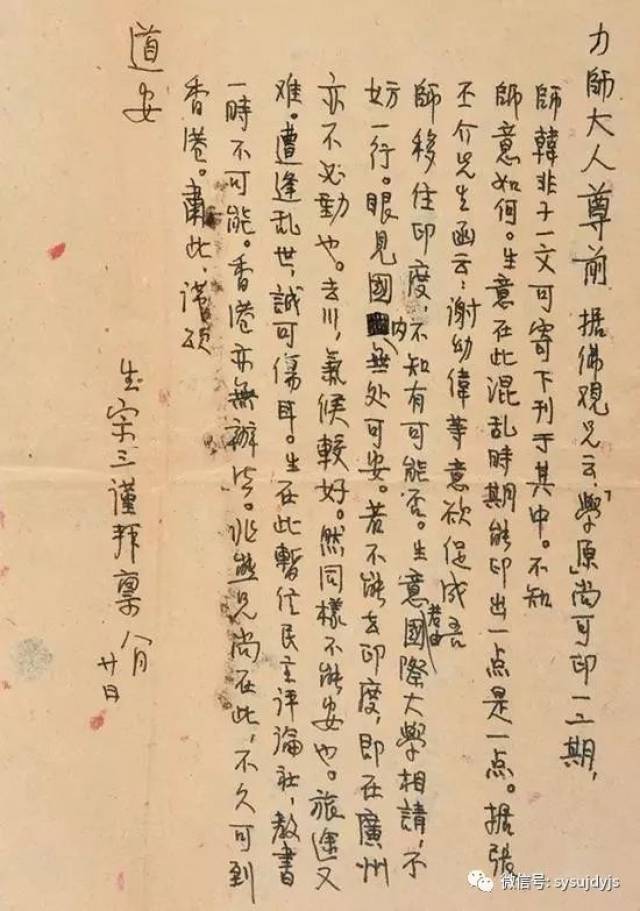 力師大人尊前 据佛觀兄云，「學原」尚可印一二期，
師韓非子一文可寄下刊于其中。不知
師意如何。生意在此混乱時期能印出一点是一点。据張
丕介先生函云：謝幼偉等意欲促成吾
師移住印度，不知有可能否。生意若由國際大學相請，不
妨一行。眼見國内無处可安。若不能去印度，即在廣州
亦不必動也。去川，氣候較好。然同樣不能安也。旅途又
难。遭逢乱世，誠可傷耳。生在此暫住民主評論社，教書
一時不可能。香港亦無辦法。兆熊兄尚在此，不久可到
香港。肅此，謹頌
道安
生宗三謹拜稟 八月
廿日
微信号: sysujdyjs